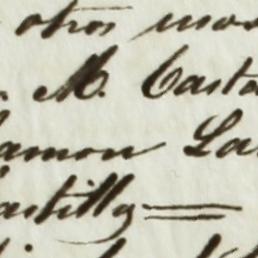 otros mas
M. Casta
amon La
astilly